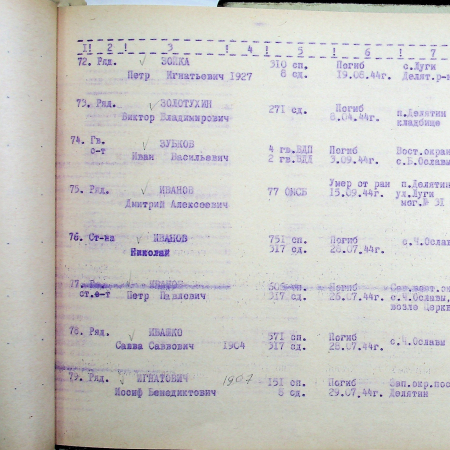 1! 2! 3 ! 4 ! 5 ! 6 ! 7
72. Ряд. ЗОЛКА 310 сп. Погиб с.Луги
Петр Игнатьевич 1927 8 сд. 19.08.44г. Делят.р-
73. Ряд. ЗОЛОТУХИН 271 сп. Погиб п.Делятин
Виктор Владимирович 8.04.44г. кладбище
74. Гв. ЗУБКОВ 4 гв.ВДП Погиб Вост.окраи
с-т Иван Васильевич 2 гв.ВДД 3.09.44г. с.Б.Ославы
75. Ряд. ИВАНОВ 77 Умер от ран п.Делятин
Дмитрий Алексеевич 15.09.44г. ул.Луга
мог.№ 31
76. Ст-на ИВАНОВ 751 сп. Погиб с.Ч.Ослав
Николай 317 сд. 28.07.44г.
77. Гв. ИВАНОВ сп. Погиб
ст.с-т Петр Павлович 317 сд. 26.07.44г. с.Ч.Ославы,
возле церкв
78. Ряд. ИВАШКО 571 сп. Погиб с.Ч.Ославы
Савва Саввович 1904 317 сд. 28.07.44г.
79. Ряд. ИГНАТОВИЧ 1907 151 сп. Погиб Зап.окр.пос
Иосиф Бенедиктович 8 сд. 29.07.44г. Делятин